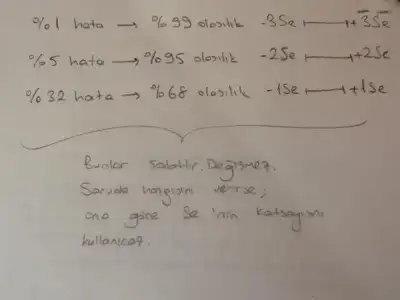 %1 hata → %99 olasılık -3Se ⊢⊣ +3Se
%5 hata → %95 olasılık -2Se ⊢⊣ +2Se
%32 hata → %68 olasılık -1Se ⊢⊣ +1Se
Bunlar sabittir. Değişmez.
Soruda hangisini verirse;
ona göre Se'nin katsayısını
kullanıcaz.